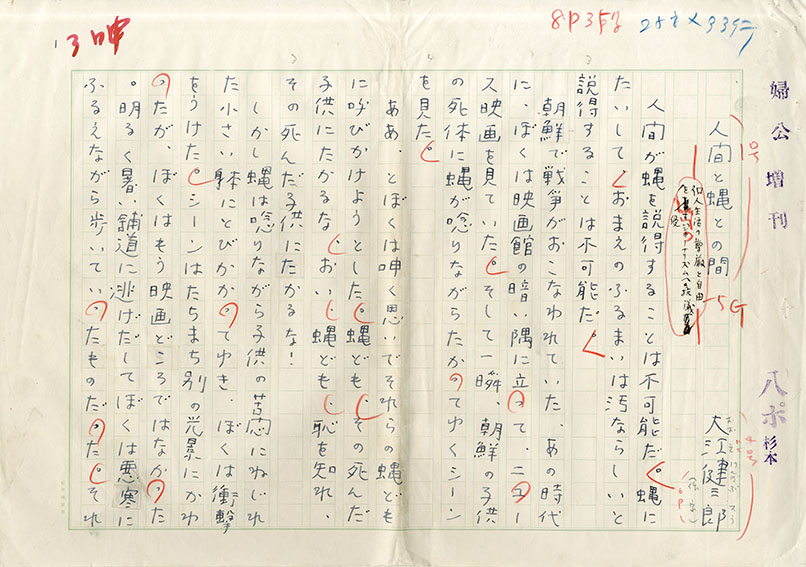 8P3段
28字×939行
13呻
婦公増刊
八ポ 杉本
人間と蝿との間
個人生活の尊厳と自由
5G
大江健三郎
おおえけんざぶろう
人間が蝿を説得することは不可能だ。蝿に
たいして、おまえのふるまいは汚ならしいと
説得することは不可能だ。
朝鮮で戦争がおこなわれていた、あの時代
に、ぼくは映画館の暗い隅に立って、ニュー
ス映画を見ていた。そして一瞬、朝鮮の子供
の死体に蝿が唸りながらたかってゆくシーン
を見た。
ああ、とぼくは呻く思いでそれらの蝿ども
に呼びかけようとした。蝿ども、その死んだ
子供にたかるな、おい、蝿ども、恥を知れ、
その死んだ子供にたかるな!
しかし蝿は唸りながら子供の苦悶にねじれ
た小さい躰にとびかかってゆき、ぼくは衝撃
をうけた。シーンはたちまち別の光景にかわ
ったが、ぼくはもう映画どころではなかった
。明るく暑い舗道に逃げだしてぼくは悪寒に
ふるえながら歩いていったものだった。それ